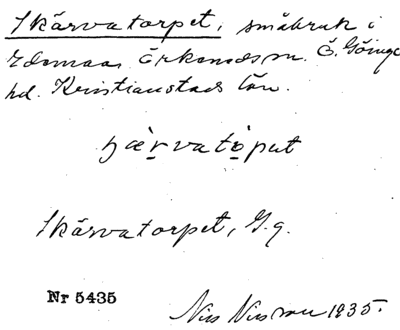 Skärvatorpet, småbruk i
Edemaa Örkeneds sn. Ö. Göinge
hd. Kristianstads län.
ʃæ̀rvatòpət
Skärvatorpet, G.g.
Nr 5435
Nils Nilsson 1935.